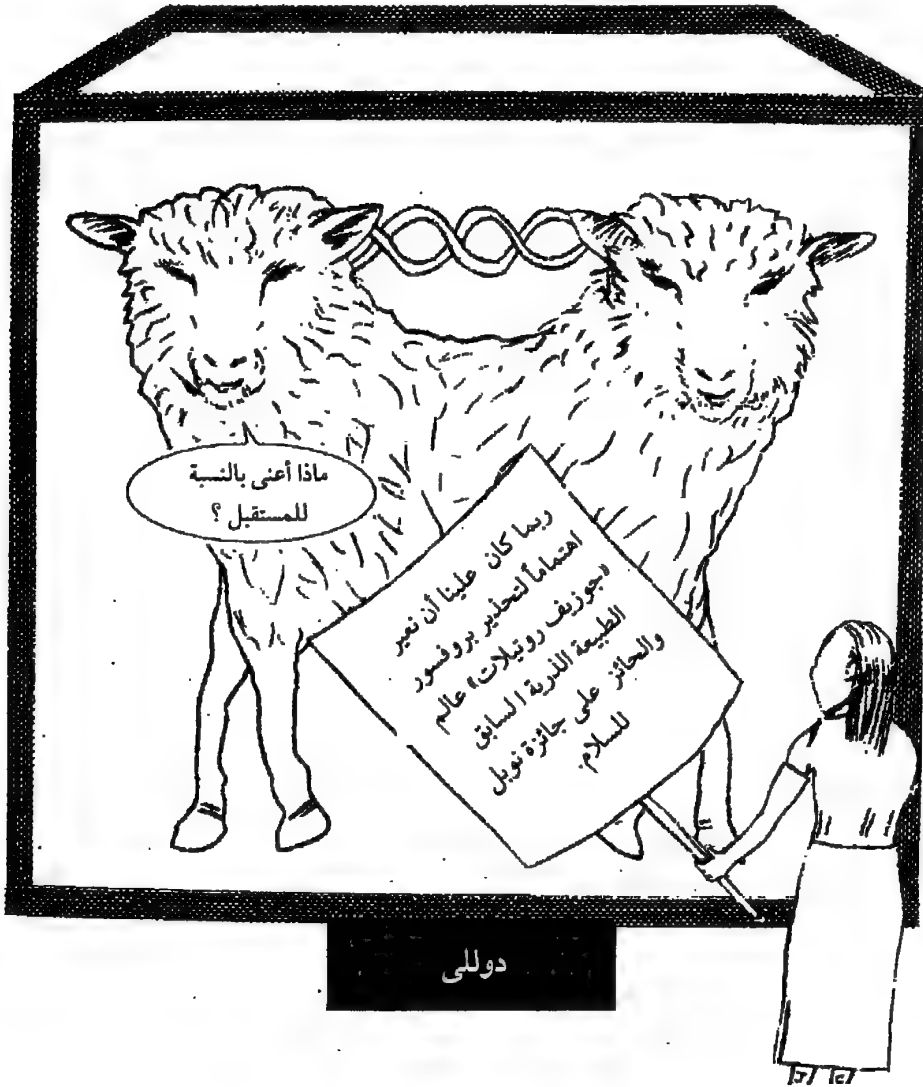 ماذا أعنى بالنسبة
للمستقبل ؟
ربما كان علينا أن نعير
اهتماماً لتحذير بروفسور
«جوزيف روتيلات» عالم
الطبيعة الذرية السابق
والحائز على جائزة نوبل
للسلام.
دوللى